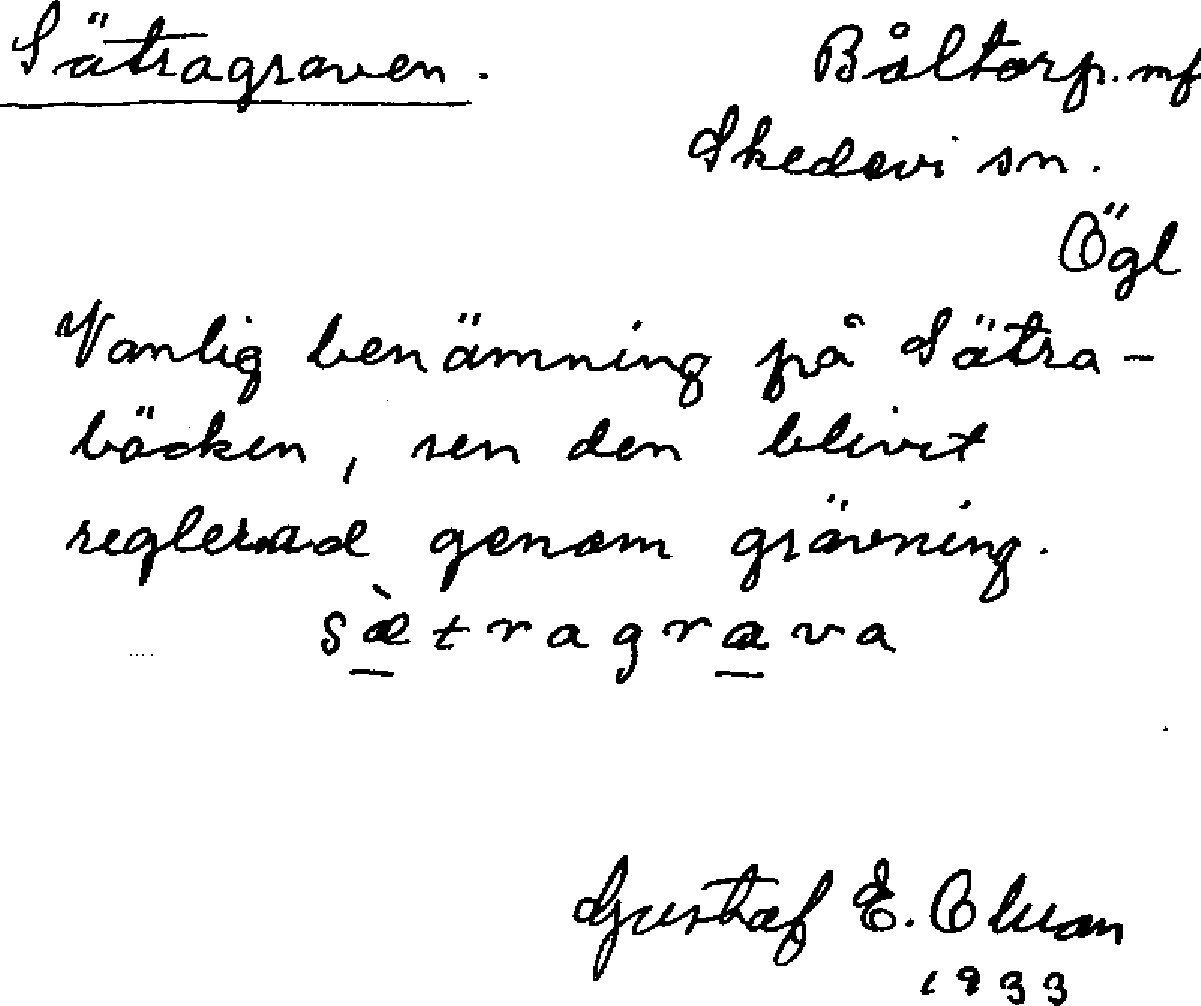 Sätragraven. Båltorp. mf
Skedevi sn.
Ögl
Vanlig benämning på Sätra-
bäcken, sen den blivit
reglerad genom grävning.
sæ̀tragrava
Gustaf E. Olsson
1933